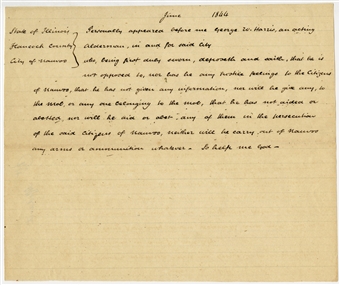 June 1844
State of Illinois } Personally appeared before me George W. Harris, an acting
Hancock County } Alderman, in and for said City
City of Nauvoo } who, being first duly sworn, deposeth and saith, that he is
not opposed to, nor has he any hostile feelings to the Citizens
of Nauvoo, that he has not given any information, nor will he give any, to
the mob, or any one belonging to the mob, that he has not aided or
abetted, nor will he aid or abet; any of them in the persecution
of the said Citizens of Nauvoo, neither will he carry out of Nauvoo
any arms or ammunition whatever. So help me God—